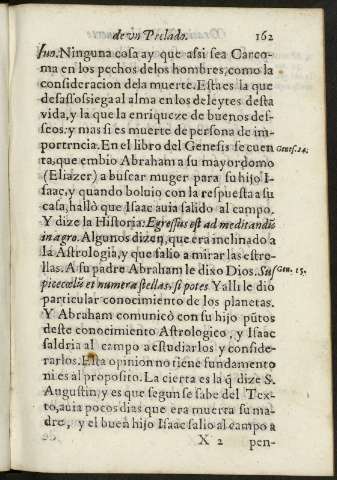 de vn Prelado. 162
luo. Ninguna cosa ay que assi sea Carco-
ma en los pechos delos hombres, como la
consideracion dela muerte. Esta es la que
desassossiega al alma en los deleytes desta
vida, y la que la enriqueze de buenos des-
seos: y mas si es muerte de persona de im-
portrncia. En el libro del Genesis se cuen Genes. 24.
ta, que embio Abraham a su mayordomo
(Eliazer) a buscar muger para su hijo I-
saac, y quando boluio con la respuesta a su
casa, hallò que Isaac auia salido al campo.
Y dize la Historia: Egressus est ad meditandũ
in agro. Algunos dizen, que era inclinado a
la Astrologia, y que salio a mirar las estre-
llas. A su padre Abraham le dixo Dios. Sus Gen. 15.
pice cœlũ et numera stellas, si potes. Y alli le dio
particular conocimiento de los planetas.
Y Abraham comunicò con su hijo pũtos
deste conocimiento Astrologico, y Isaac
saldria al campo a estudiarlos y conside-
rarlos. Esta opinion no tiene fundamento
ni es al proposito. La cierta es la q̃ dize S.
Augustin, y es que segun se sabe del Tex-
to, auia pocos dias que era muerta su ma-
dre, y el buen hijo Isaac salio al campo a
X 2 pen-